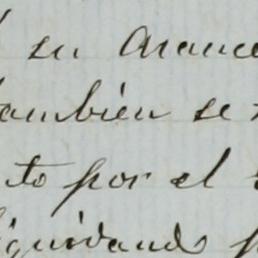 su arance
también se
to por el
liquidando p